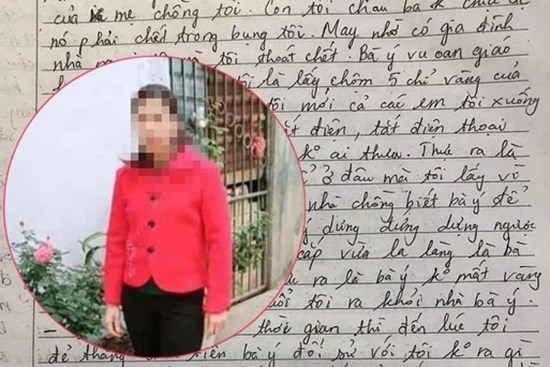 của mẹ chồng tôi. Con tôi cháu bà
nó phải chết trong bụng tôi. May nhờ có gia đình
nhà tôi thoát chết. Bà ý vu oan giao
là lấy chộm 5 chỉ vàng của
tôi mới cả các em tôi xuống
điện, tắt điện thoại
k° ai thưa. Thực ra là
ở đâu mà tôi lấy vì
nhà chồng biết bà ý để
dựng đứng dựng ngược
cắp vừa la làng là bà
ra là bà ý k° mất vàng
tôi ra khỏi nhà bà ý.
- thời gian thì đến lúc tôi
đẻ bà ý đối sử với tôi k° ra gì